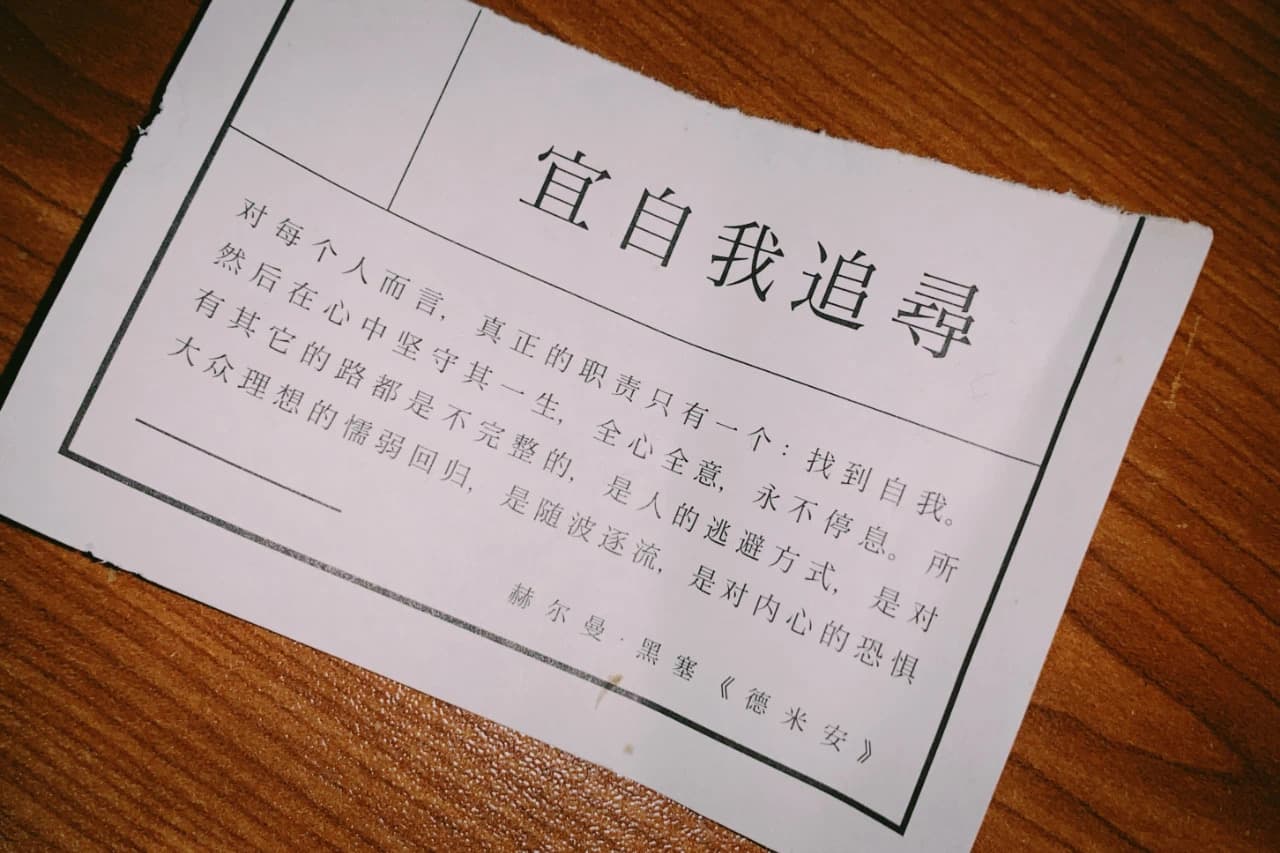 宜自我追尋
对每个人而言，真正的职责只有一个：找到自我。
然后在心中坚守其一生，全心全意，永不停息。所
有其它的路都是不完整的，是人的逃避方式，是对
大众理想的懦弱回归，是随波逐流，是对内心的恐惧
赫尔曼·黑塞《德米安》